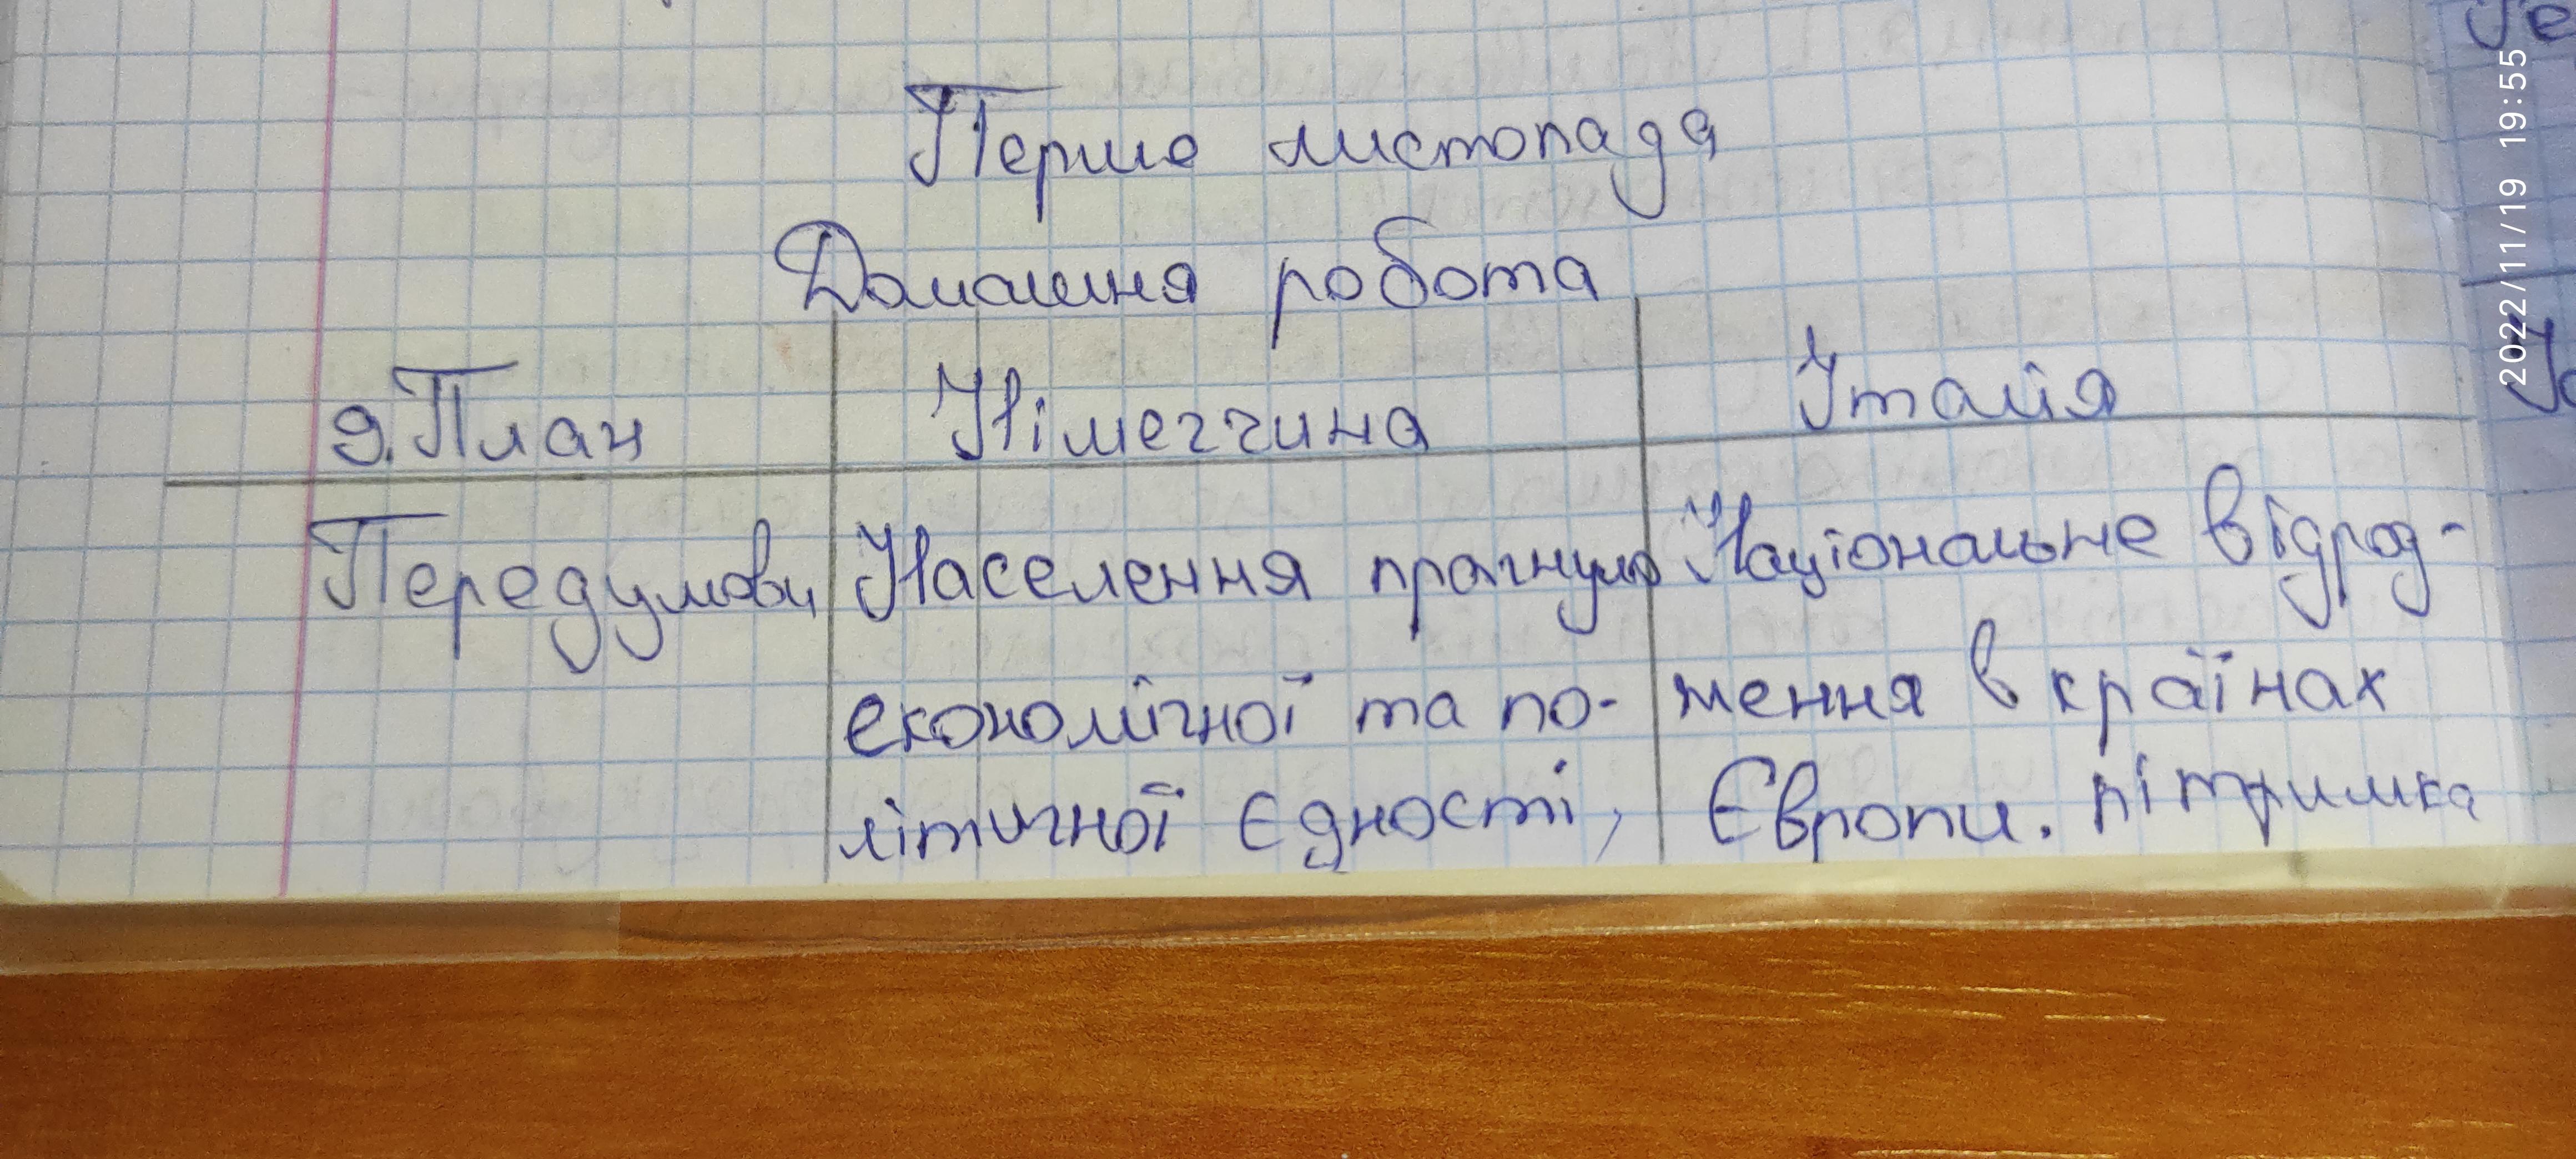 Перше листопада
Домашня робота
9. План Німеччина Італія
Передумови Населення прагнуло Національне відрод-
економічної та по- ження в країнах
літичної єдності, Європи. пітримка
2022/11/19 19:55